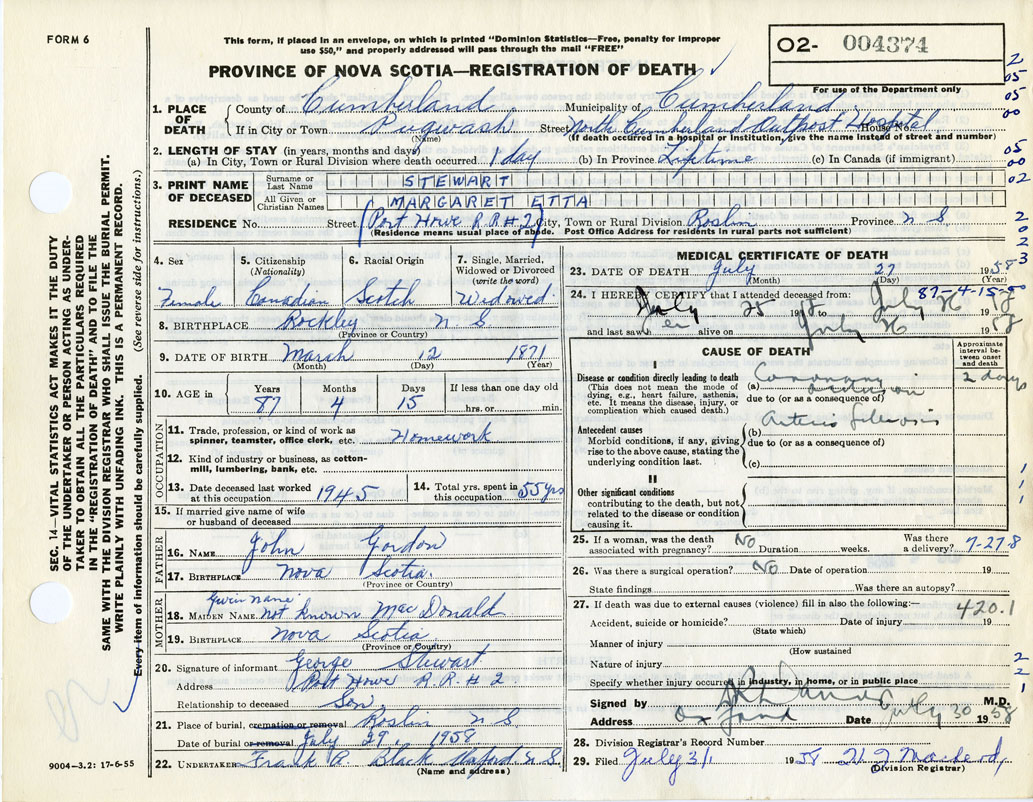 FORM 6
This form, if placed in an envelope, on which is printed "Dominion Statistics—Free, penalty for improper
use $50," and properly addressed will pass through the mail "FREE"
O2- 004374
For use of the Department only
PROVINCE OF NOVA SCOTIA—REGISTRATION OF DEATH
SEC. 14—VITAL STATISTICS ACT MAKES IT THE DUTY
OF THE UNDERTAKER OR PERSON ACTING AS UNDER-
TAKER TO OBTAIN ALL THE PARTICULARS REQUIRED
IN THE "REGISTRATION OF DEATH" AND TO FILE THE
SAME WITH THE DIVISION REGISTRAR WHO SHALL ISSUE THE BURIAL PERMIT.
WRITE PLAINLY WITH UNFADING INK. THIS IS A PERMANENT RECORD.
Every item of information should be carefully supplied. (See reverse side for instructions.)
1. PLACE OF DEATH County of Cumberland Municipality of Cumberland
If in City or Town Pugwash Street North Cumberland Outpost Hospital House No.
(Name) (If death occurred in a hospital or institution, give the name instead of street and number)
2. LENGTH OF STAY (in years, months and days)
(a) In City, Town or Rural Division where death occurred 1 day (b) In Province Lifetime (c) In Canada (if immigrant)
3. PRINT NAME OF DECEASED Surname or Last Name STEWART
All Given or Christian Names MARGARET ETTA
RESIDENCE No. Street (Port Howe R.R.#2) City, Town or Rural Division Roslin Province N S
(Residence means usual place of abode. Post Office Address for residents in rural parts not sufficient)
4. Sex Female
5. Citizenship (Nationality) Canadian
6. Racial Origin Scotch
7. Single, Married, Widowed or Divorced (write the word) Widowed
8. BIRTHPLACE Rockley N S
(Province or Country)
9. DATE OF BIRTH March 12 1871
(Month) (Day) (Year)
10. AGE in Years 87 Months 4 Days 15 If less than one day old hrs. or min.
OCCUPATION
11. Trade, profession, or kind of work as spinner, teamster, office clerk, etc. Homework
12. Kind of industry or business, as cotton-mill, lumbering, bank, etc.
13. Date deceased last worked at this occupation 1945
14. Total yrs. spent in this occupation 55 yrs
15. If married give name of wife or husband of deceased
FATHER
16. NAME John Gordon
17. BIRTHPLACE Nova Scotia
(Province or Country)
MOTHER
Given name
18. MAIDEN NAME not known MacDonald
19. BIRTHPLACE Nova Scotia
(Province or Country)
20. Signature of informant George Stewart
Address Port Howe R.R.#2
Relationship to deceased Son
21. Place of burial, cremation or removal Roslin N S
Date of burial or removal July 29, 1958
22. UNDERTAKER Frank A. Black Oxford N.S.
(Name and address)
9004—3.2: 17-6-55
MEDICAL CERTIFICATE OF DEATH
23. DATE OF DEATH July 27 1958
(Month) (Day) (Year)
87-4-15
24. I HEREBY CERTIFY that I attended deceased from:
July 25 1958 to July 26 1958
and last saw her alive on July 26 1958
CAUSE OF DEATH
Approximate interval between onset and death
I
Disease or condition directly leading to death
(This does not mean the mode of dying, e.g., heart failure, asthenia, etc. It means the disease, injury, or complication which caused death.)
(a) Coronary occlusion 2 days
due to (or as a consequence of)
Antecedent causes
Morbid conditions, if any, giving rise to the above cause, stating the underlying condition last.
(b) Arterio Sclerosis
due to (or as a consequence of)
(c)
II
Other significant conditions
contributing to the death, but not related to the disease or condition causing it.
25. If a woman, was the death associated with pregnancy? No Duration weeks. Was there a delivery?
7-27 8
26. Was there a surgical operation? No Date of operation 19
State findings Was there an autopsy?
27. If death was due to external causes (violence) fill in also the following:—
420.1
Accident, suicide or homicide? Date of injury 19
(State which)
Manner of injury
(How sustained
Nature of injury
Specify whether injury occurred in industry, in home, or in public place
Signed by M.D.
Address Oxford Date July 30 1958
28. Division Registrar's Record Number
29. Filed July 31 1958
(Division Registrar)
2
05
05
00
05
00
02
2
0
2
3
1
1
1
2
2
1